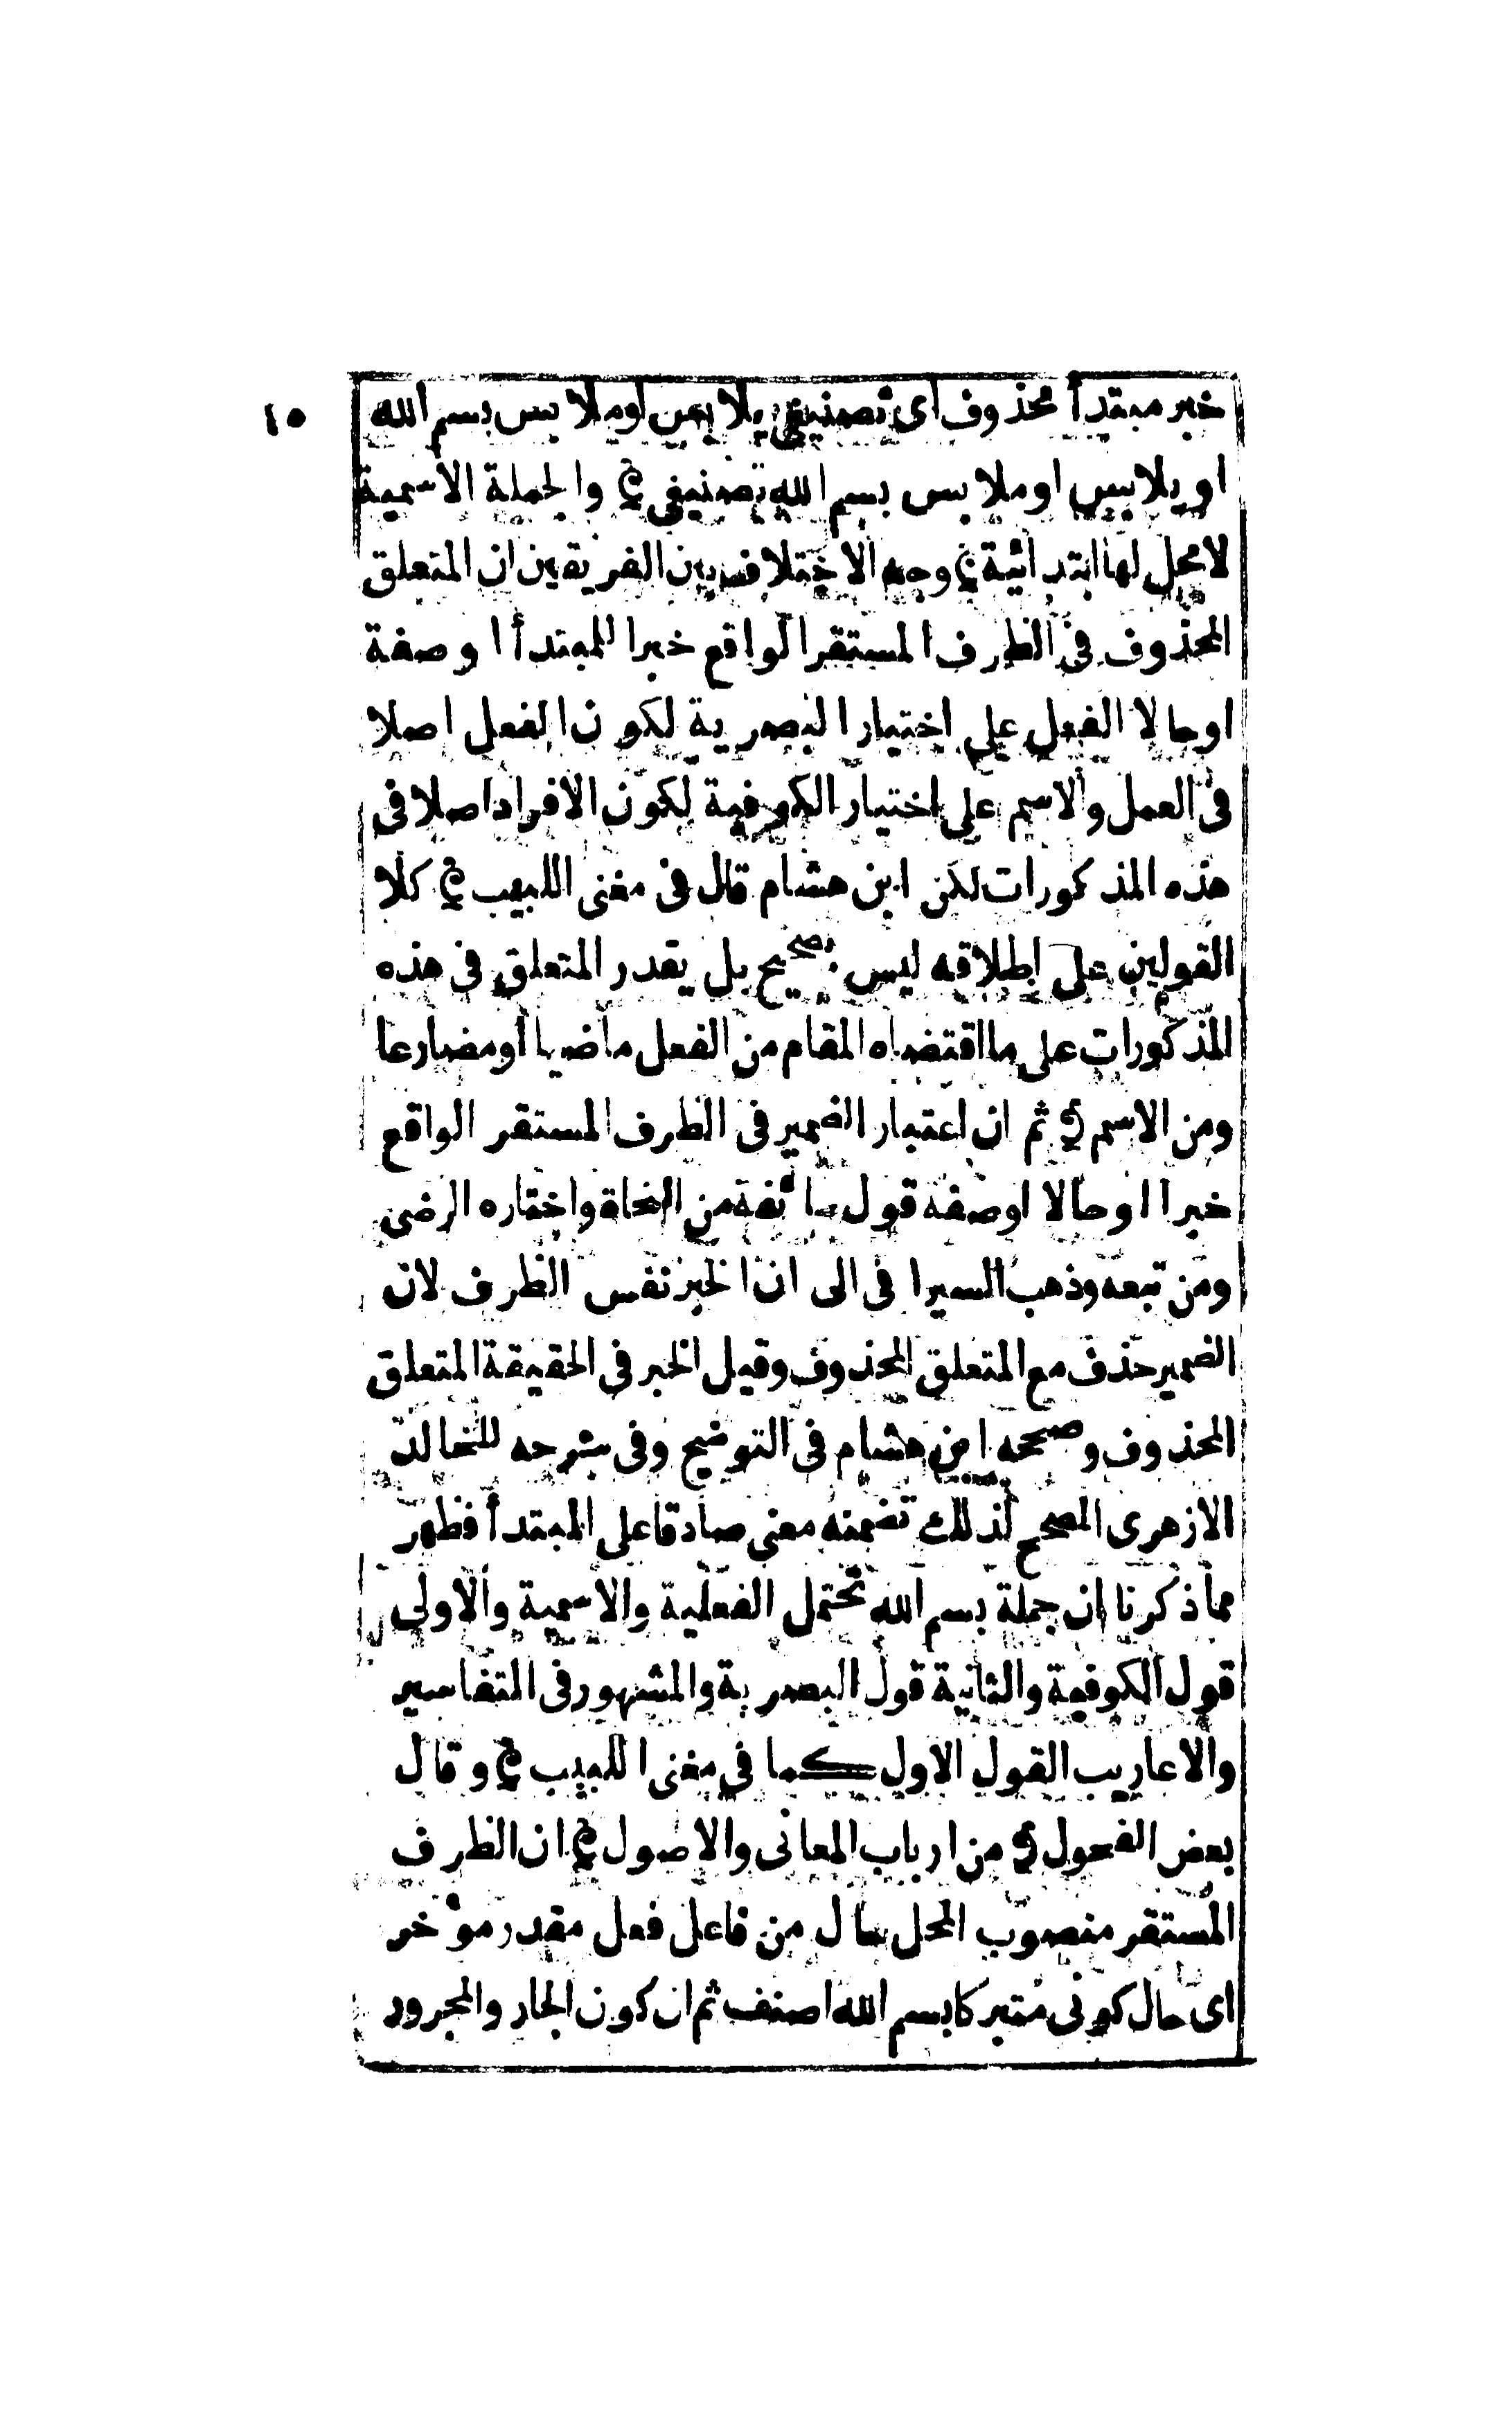 ١٥
خبر مبتدأ محذوف اى تصنيفى يلابس اوملابس بسم الله
او يلابس اوملابس بسم الله تصنيفى والجملة الاسمية
لامحل لها ابتدائية وجه الاختلاف بين الفريقين ان المتعلق
المحذوف فى الظرف المستقر الواقع خبرا للمبتدأ اوصفة
اوحالا الفعل على اختيار البصرية لكون الفعل اصلا
فى العمل والاسم على اختيار الكوفية لكون الافراد اصلا فى
هذه المذكورات لكن ابن هشام قال فى مغنى اللبيب كلا
القولين على اطلاقه ليس بصحيح بل يقدر المتعلق فى هذه
المذكورات على مااقتضاه المقام من الفعل ماضيا أومضارعا
ومن الاسم ثم ان اعتبار الضمير فى الظرف المستقر الواقع
خبرا اوحالا اوصفة قول طائفة من النحاة واختاره الرضى
ومن تبعه وذهب السيرافى الى ان الخبر نفس الظرف لان
الضمير حذف مع المتعلق المحذوف وقيل الخبر فى الحقيقة المتعلق
المحذوف وصححه ابن هشام فى التوضيح وفى شرحه للخالد
الازهرى المصحح لذلك تضمنه معنى صادقا على المبتدأ فظهر
مما ذكرنا ان جملة بسم الله تحتمل الفعلية والاسمية والاولى
قول الكوفية والثانية قول البصرية والمشهور فى التفاسير
والاعاريب القول الاول كما فى مغنى اللبيب وقال
بعض الفحول من ارباب المعانى والاصول ان الظرف
المستقر منصوب المحل حال من فاعل فعل مقدر مؤخر
اى حال كونى متبركا بسم الله اصنف ثم ان كون الجار والمجرور